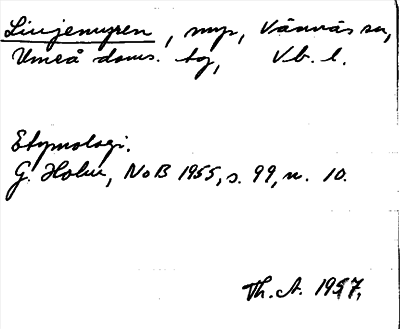 Linjemyren, myr, Vännäs sn,
Umeå doms. tg, Vb. l.
Etymologi.
G. Holm, NoB 1955, s. 99, n. 10.
Th. A. 1957.